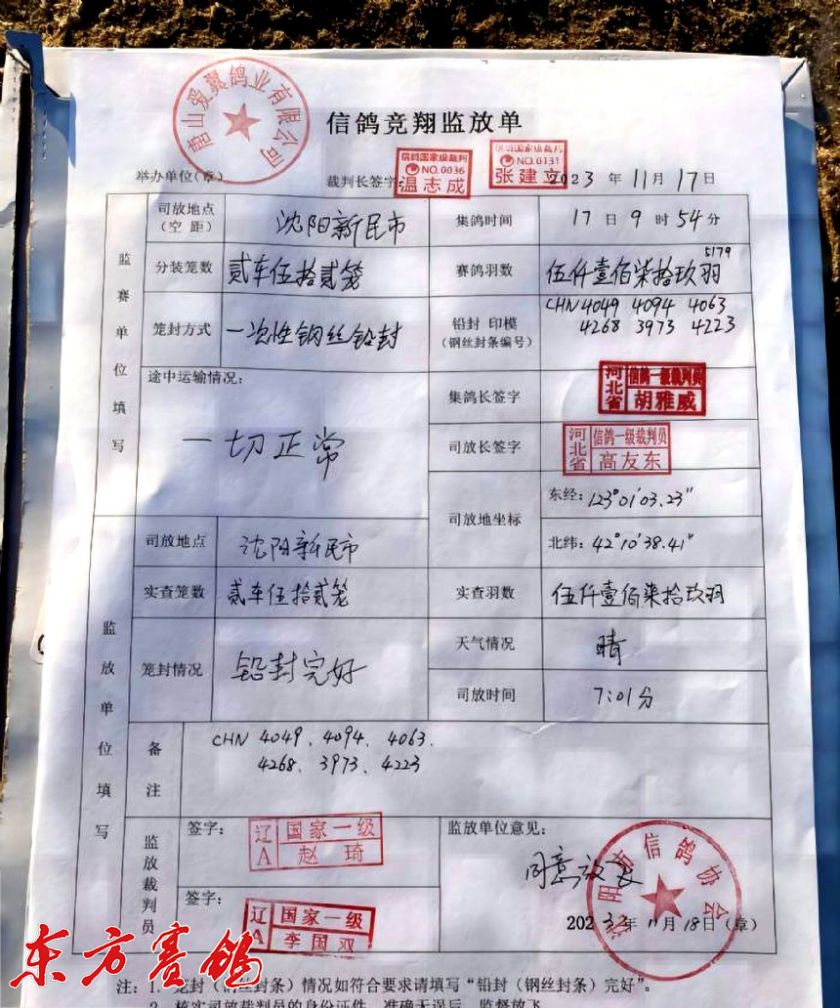 唐山爱翼鸽业有限公司
信鸽竞翔监放单
信鸽国家级裁判
NO.0036
温志成
信鸽国家级裁判
NO.0131
张建立
举办单位(章) 裁判长签字: 2023 年 11 月 17 日
监赛单位填写
司放地点
(空 距)
沈阳新民市
集鸽时间
17 日 9 时 54 分
分装笼数
贰车伍拾贰笼
赛鸽羽数
5179
伍仟壹佰柒拾玖羽
笼封方式
一次性钢丝铅封
铅封 印模
(钢丝封条编号)
CHN 4049 4094 4063
4268 3973 4223
途中运输情况:
一切正常
集鸽长签字
河北省 信鸽一级裁判员
胡雅威
司放长签字
河北省 信鸽一级裁判员
高友东
司放地坐标
东经: 123°01′03.23″
北纬: 42°10′38.41″
监放单位填写
司放地点
沈阳新民市
实查笼数
贰车伍拾贰笼
实查羽数
伍仟壹佰柒拾玖羽
笼封情况
铅封完好
天气情况
晴
司放时间
7:01分
备注
CHN 4049、4094、4063、
4268、3973、4223
监放裁判员
签字:
辽A 国家一级
赵琦
签字:
辽A 国家一级
李国双
监放单位意见:
同意放飞
沈阳市信鸽协会
2023年11月18日(章)
东方赛鸽
注: 1. 笼封(钢丝封条)情况如符合要求请填写“铅封(钢丝封条)完好”。
2. 核实司放裁判员的身份证件,准确无误后,监督放飞